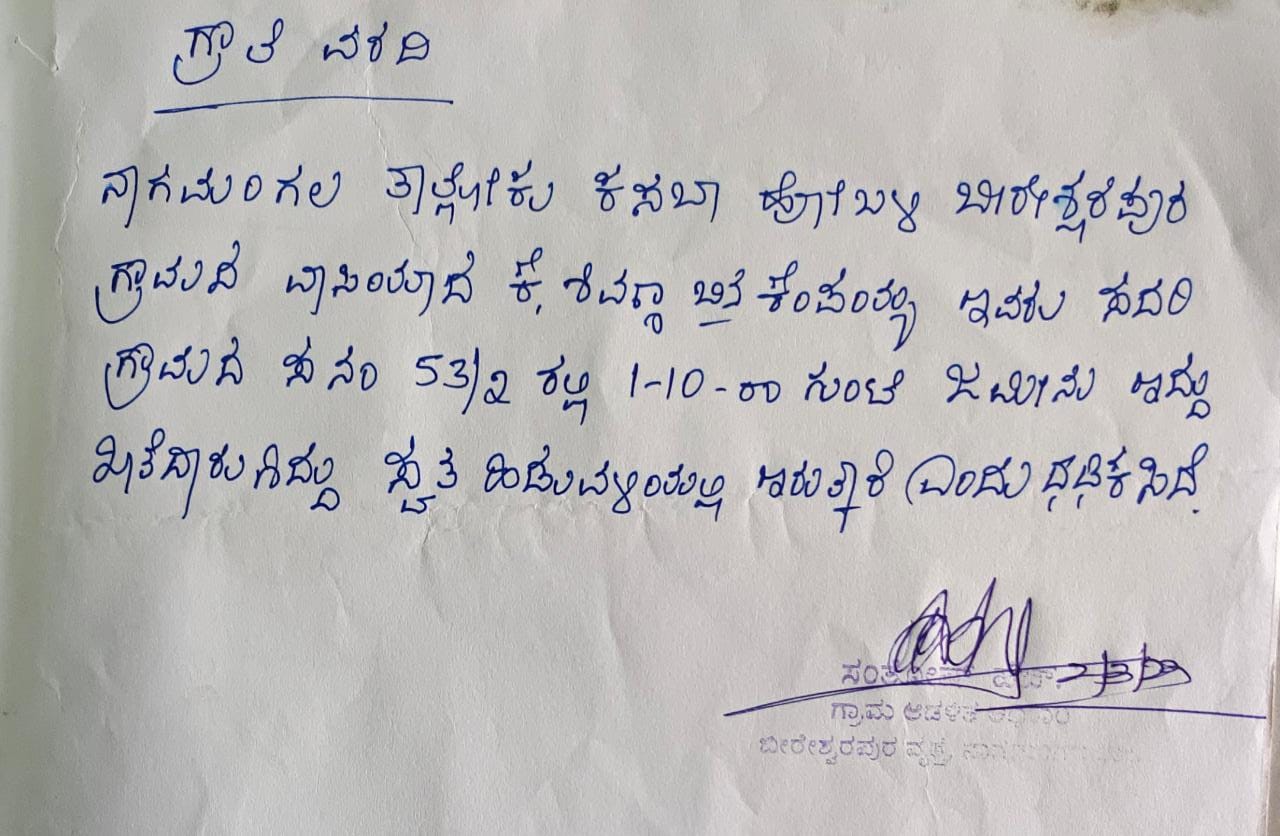 ಗ್ರಾತೆ ವರದಿ
ನಾಗಮಂಗಲ ತಾಲ್ಲೋಕು ಕಸಬಾ ಹೋಬಳಿ ಬೀರೇಶ್ವರಪುರ
ಗ್ರಾಮದ ವಾಸಿಯಾದ ಕೆ, ಶಿವಣ್ಣ ಬಿನ್ ಕೆಂಪಯ್ಯ ಇವರು ಸದರಿ
ಗ್ರಾಮದ ಸ ನಂ 53/2 ರಲ್ಲಿ 1-10-೯೦ ಗುಂಟೆ ಜಮೀನು ಇದ್ದು
ಖಾತೆದಾರರಾಗಿದ್ದು ಸ್ವತ ಹಿಡುವಳಿಯಲ್ಲಿ ಇರುತ್ತಾರೆ ಎಂದು ಧೃಢಿಕರಿಸಿದೆ.
2/3/23
ಗ್ರಾಮ ಆಡಳಿತ
ಬೀರೇಶ್ವರಪುರ ವೃತ್ತ,